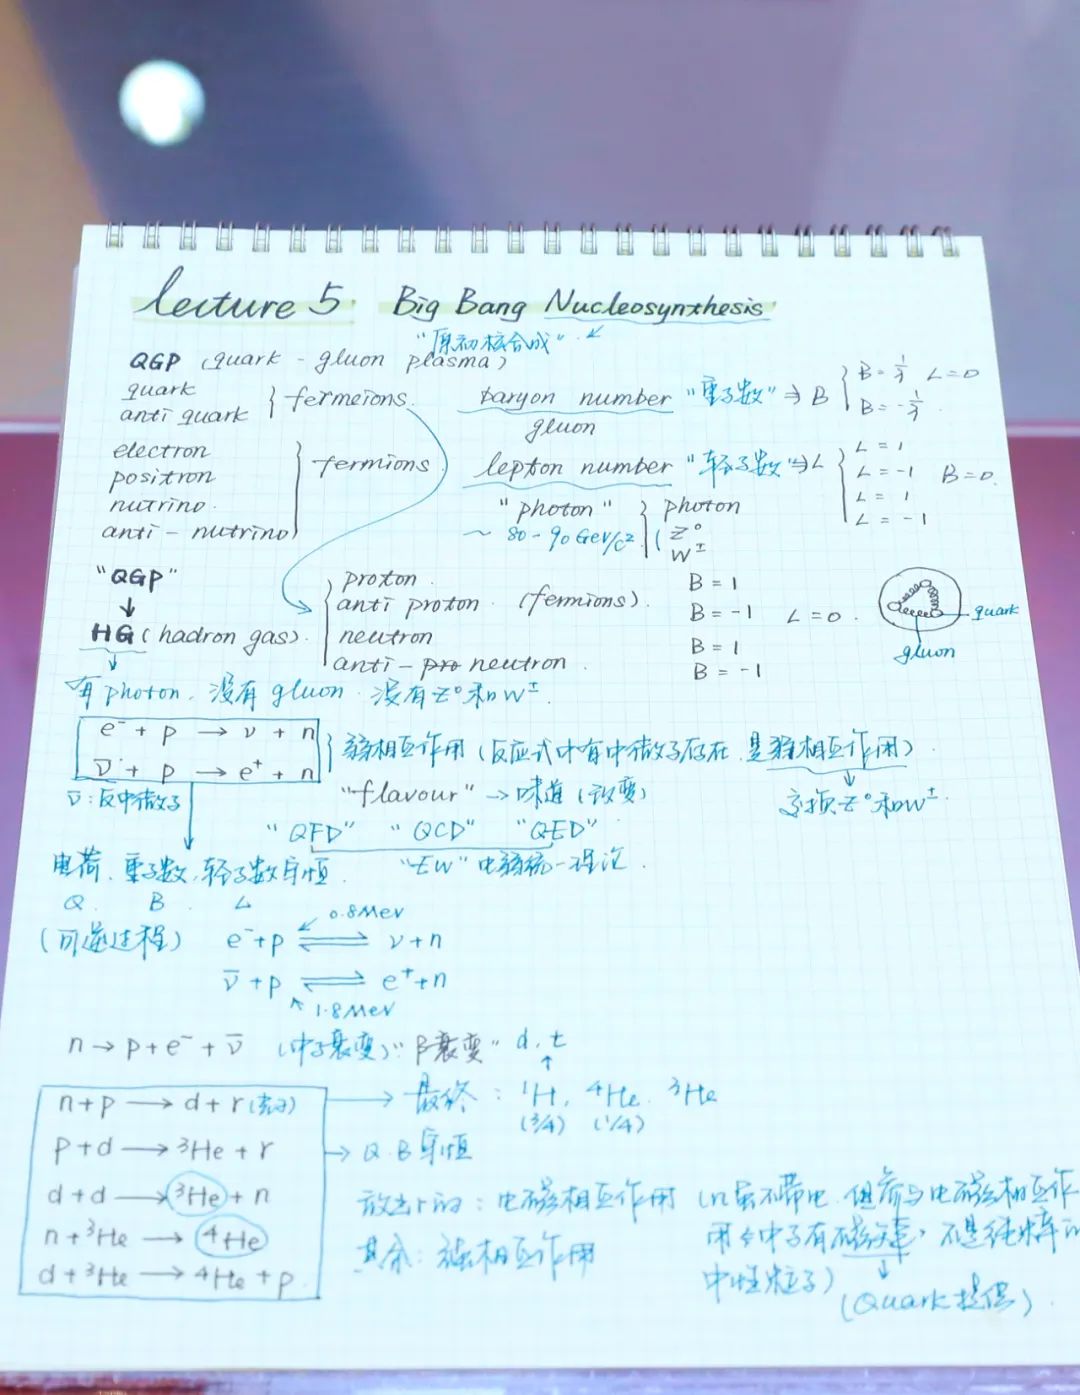 lecture 5 Big Bang Nucleosynthesis
"原初核合成"
QGP (quark - gluon plasma)
quark
anti quark
fermeions
baryon number "重子数" ⇒ B
B = 1/3 L=0
B = -1/3
gluon
electron
positron
nutrino
anti - nutrino
fermions
lepton number "轻子数" ⇒ L
L = 1
L = -1
L = 1
L = -1
B=0
"photon"
~ 80 - 90 GeV/c²
photon
Z⁰
W±
"QGP"
↓
HG (hadron gas)
proton
anti proton (fermions)
neutron
anti - neutron
B = 1
B = -1 L = 0
B = 1
B = -1
quark
gluon
有 photon, 没有 gluon. 没有 Z⁰ 和 W±.
e⁻ + p → ν + n
ν̄ + p → e⁺ + n
弱相互作用 (反应式中有中微子存在, 是弱相互作用)
交换 Z⁰ 和 W±
ν̄ : 反中微子
"flavour" → 味道 (改变)
"QFD" "QCD" "QED"
"EW" 电弱统一理论.
电荷, 重子数, 轻子数守恒.
Q. B. L
(可逆过程)
0.8MeV
e⁻+p ⇌ ν+n
ν̄+p ⇌ e⁺+n
1.8MeV
n → p + e⁻ + ν̄ (中子衰变) "β衰变" d, t
n+p → d + r (光子)
p+d → ³He + r
d+d → ³He + n
n+³He → ⁴He
d+³He → 4He + p
→ 最终 : ¹H, ⁴He. ³He
(3/4) (1/4)
→ Q. B 守恒
放出 r 的 : 电磁相互作用 (n 虽不带电, 但参与电磁相互作
用 中子有磁矩, 不是纯粹的
中性粒子)
(Quark 提供)
其余 : 强相互作用